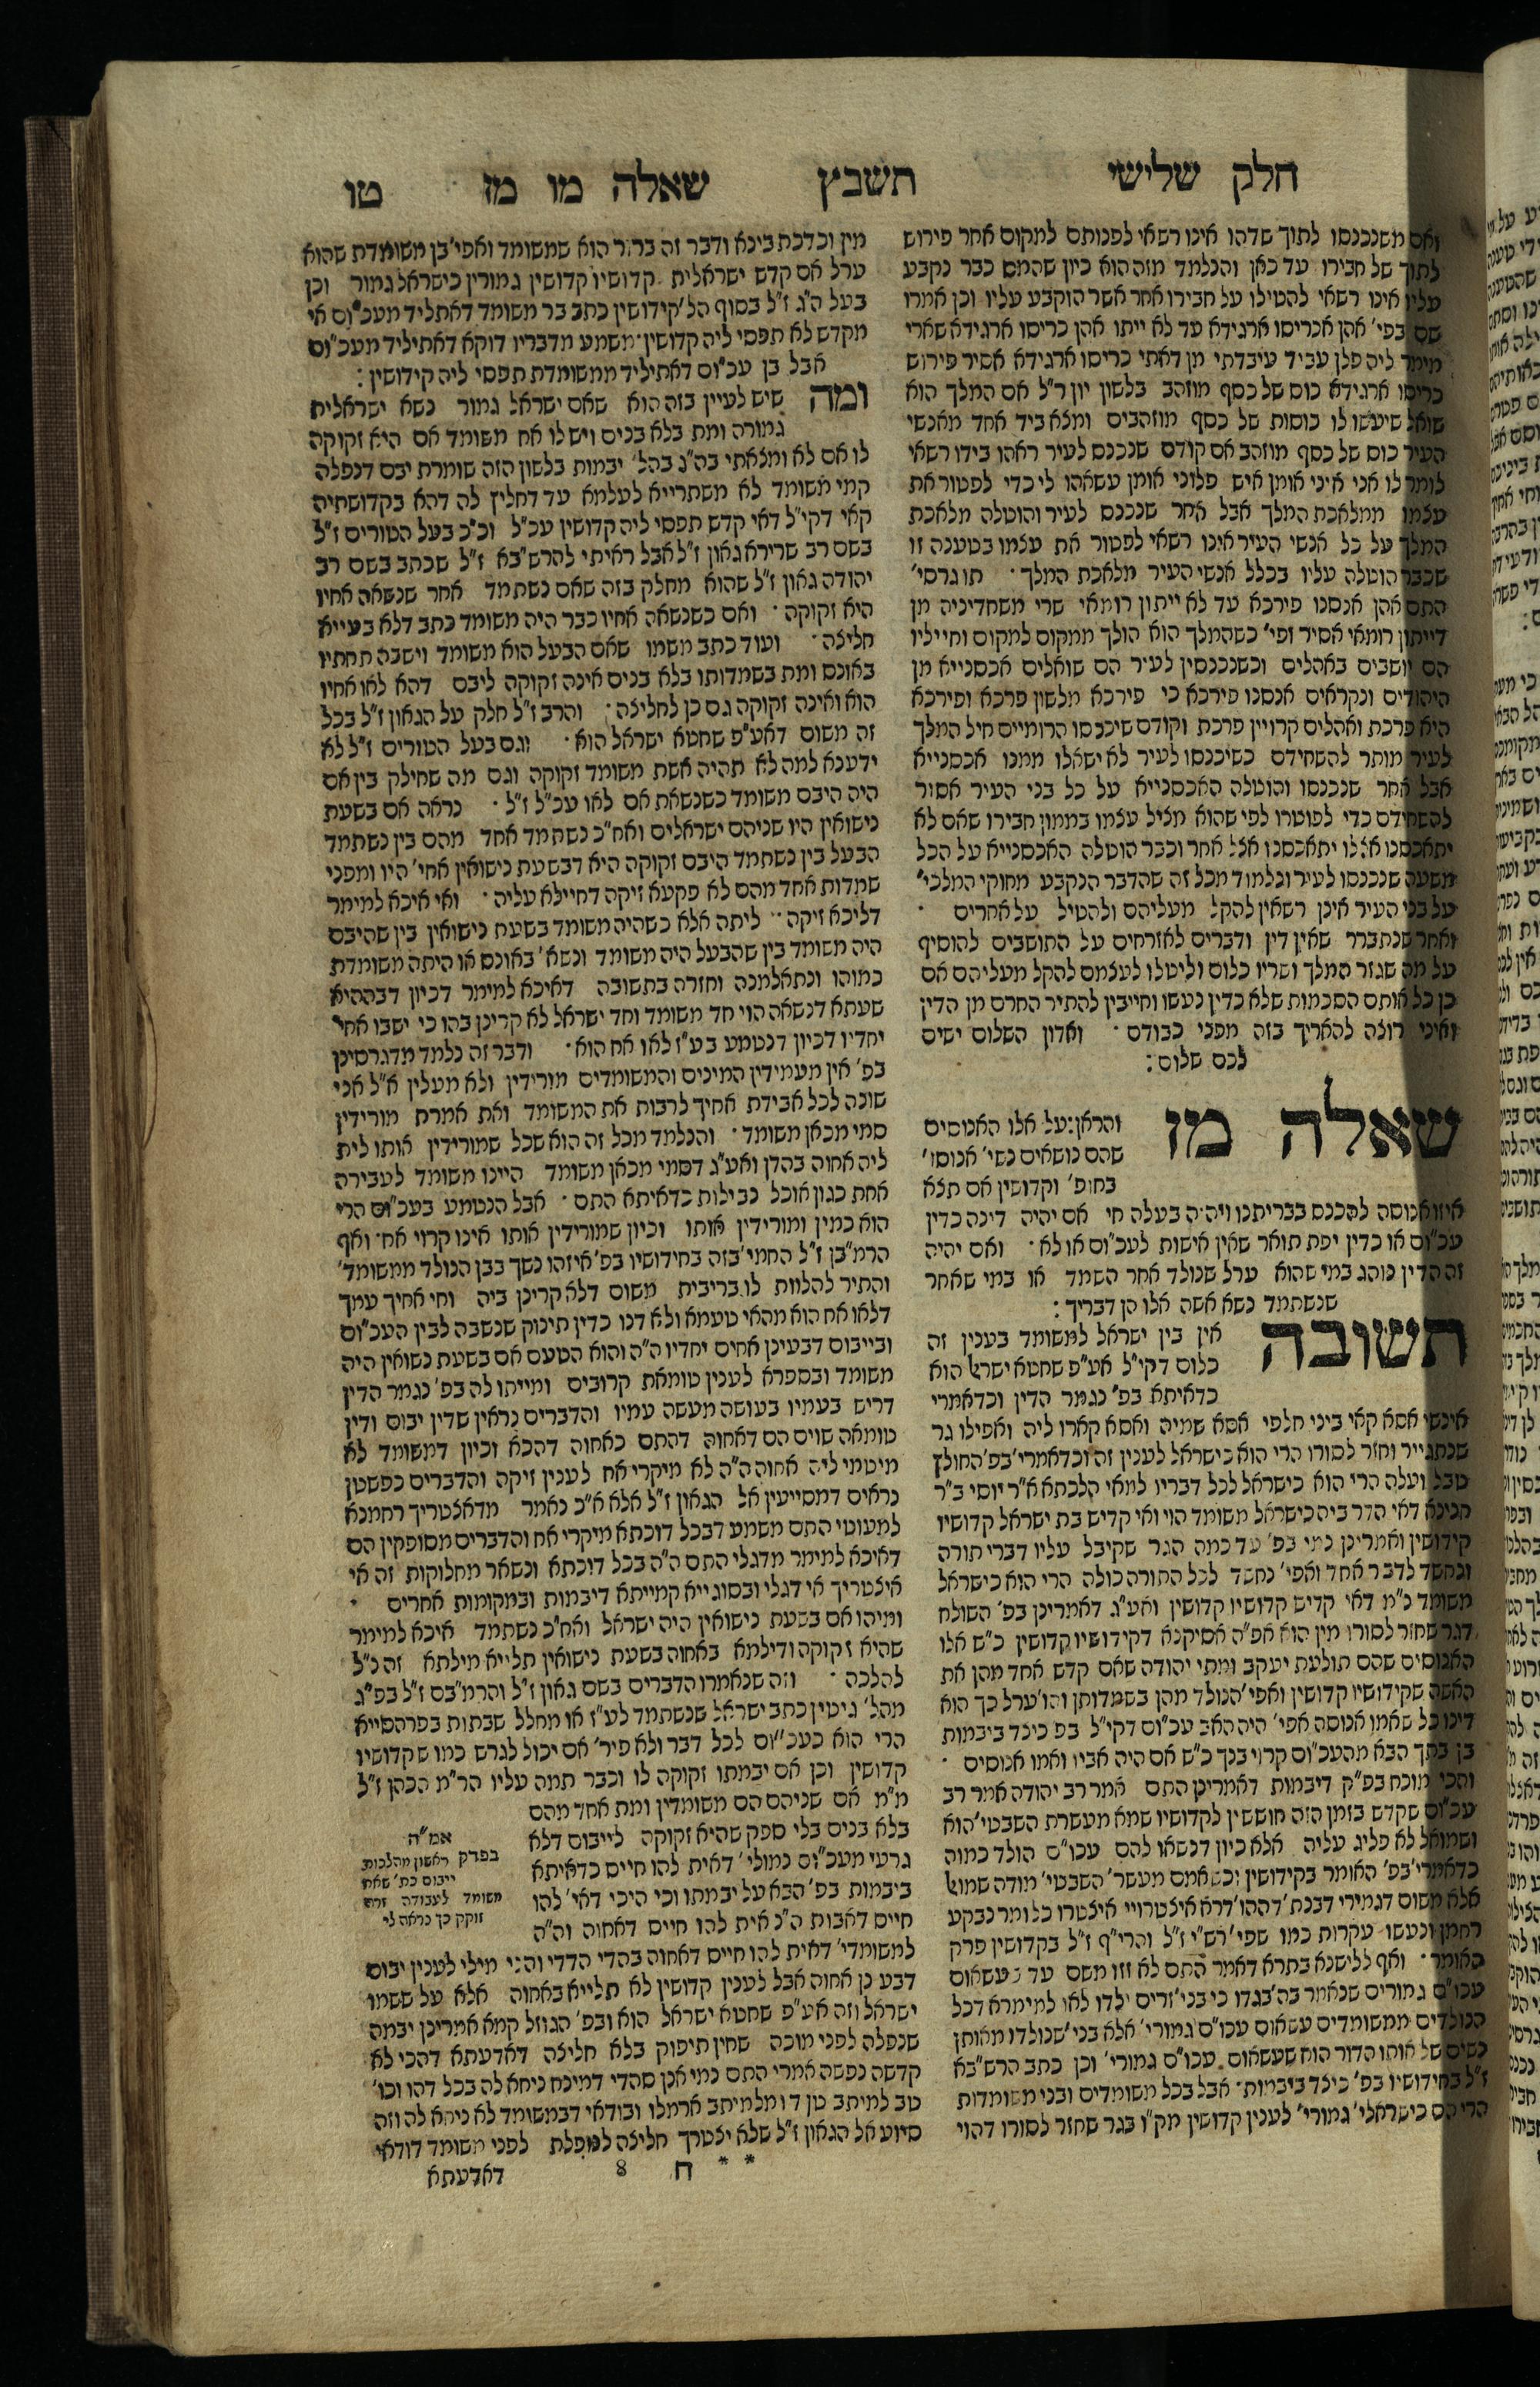 חלק שלישי תשבץ שאלה מו מז טו
ואם משנכנסו לתוך שדהו אינו רשאי לפנותם למקום אחר פירוש
לתוך של חבירו עד כאן והנלמד מזה הוא כיון שהמס כבר נקבע
עליו אינו רשאי להטילו על חבירו אחר אשר הוקבע עליו וכן אמרו
שם בפי' אהן אכריסו ארגידא עד לא ייתו אהן כריסו ארגידא שארי
מימר ליה פלן עביד עיבדתי מן דאתי כריסו ארגידא אסיר פירוש
כריסו ארגידא כוס של כסף מוזהב בלשון יון ר"ל אם המלך הוא
שואל שיעשו לו כוסות של כסף מוזהבים ומצא ביד אחד מאנשי
העיר כוס של כסף מוזהב אם קודם שנכנס לעיר ראהו בידו רשאי
לומר לו אני איני אומן איש פלוני אומן עשאהו לי כדי לפטור את
עצמו ממלאכת המלך אבל אחר שנכנס לעיר והוטלה מלאכת
המלך על כל אנשי העיר אינו רשאי לפטור את עצמו בטענה זו
שכבר הוטלה עליו בכלל אנשי העיר מלאכת המלך · תו גרסי'
התם אהן אכסנו פירכא עד לא ייתון רומאי שרי משחדיניה מן
דייתון רומאי אסיר ופי' כשהמלך הוא הולך ממקום למקום וחייליו
הם יושבים באהלים וכשנכנסין לעיר הם שואלים אכסנייא מן
היהודים ונקראים אכסנו פירכא כי פירכא מלשון פרכא ופירכא
היא פרכת ואהלים קרויין פרכת וקודם שיכנסו הרומיים חיל המלך
לעיר מותר להשחידם כשיכנסו לעיר לא ישאלו ממנו אכסנייא
אבל אחר שנכנסו והוטלה האכסנייא על כל בני העיר אסור
להשחידם כדי לפוטרו לפי שהוא מציל עצמו בממון חבירו שאם לא
יתאכסנו אצלו יתאכסנו אצל אחר וכבר הוטלה האכסנייא על הכל
משעה שנכנסו לעיר ונלמוד מכל זה שהדבר הנקבע מחוקי המלכי'
על בני העיר אינן רשאין להקל מעליהם ולהטיל על אחרים ·
ואחר שנתברר שאין דין ודברים לאזרחים על התושבים להוסיף
על מה שגזר המלך ושריו כלום וליטלו לעצמם להקל מעליהם אם
כן כל אותם הסכמות שלא כדין נעשו וחייבין להתיר החרם מן הדין
ואיני רוצה להאריך בזה מפני כבודם · ואדון השלום ישים
לכם שלום:
שאלה מז והראן: על אלו האנוסים
שהם נושאים נשי' אנוסו'
בחופ' וקדושין אם תצא
איזו אנוסה להכנס בבריתנו ויהיה בעלה חי אם יהיה דינה כדין
עכ"ום או כדין יפת תואר שאין אישות לעכ"ום או לא · ואם יהיה
זה הדין נוהג במי שהוא ערל שנולד אחר השמד או במי שאחר
שנשתמד נשא אשה אלו הן דבריך:
תשובה אין בין ישראל למשומד בענין זה
כלום דקי"ל אע"פ שחטא ישראל הוא
כדאיתא בפ' נגמר הדין וכדאמרי
אינשי אסא קאי ביני חלפי אסא שמיה ואסא קארו ליה ואפילו גר
שנתגייר וחזר לסורו הרי הוא כישראל לענין זה וכדאמרי' בפ' החולץ
טבל ועלה הרי הוא כישראל לכל דבריו למאי הלכתא א"ר יוסי ב"ר
חנינא דאי הדר ביה כישראל משומד הוי ואי קדיש בת ישראל קדושיו
קידושין ואמרינן נמי בפ' עד כמה הגר שקיבל עליו דברי תורה
ונחשד לדבר אחד ואפי' נחשד לכל התורה כולה הרי הוא כישראל
משומד נ"מ דאי קדיש קדושיו קדושין ואע"ג דאמרינן בפ' השולח
דגר שחזר לסורו מין הוא אפ"ה אסיקנא דקידושיו קדושין כ"ש אלו
האנוסים שהם תולעת יעקב ומתי יהודה שאם קדש אחד מהן את
האשה שקידושיו קדושין ואפי' הנולד מהן בשמדותן והו' ערל כך הוא
דינו כל שאמו אנוסה אפי' היה האב עכ"ום דקי"ל בפ כיצד ביבמות
בן בתך הבא מהעכ"ום קרוי בנך כ"ש אם היה אביו ואמו אנוסים ·
והכי מוכח בפ"ק דיבמות דאמרינן התם אמר רב יהודה אמר רב
עכ"ום שקדש בזמן הזה חוששין לקדושיו שמא מעשרת השבטי' הוא
ושמואל לא פליג עליה אלא כיון דנשאו להם עכו"ם הולד כמוה
כדאמרי' בפ' האומר בקידושין וכשאמם מעשר' השבטי' מודה שמואל
אלא משום דגמירי דבנת' דההו' דרא איצטרויי איצטרו כלומר נבקע
רחמן ונעשו עקרות כמו שפי' רש"י ז"ל והרי"ף ז"ל בקדושין פרק
האומר · ואף ללישנא בתרא דאמר התם לא זזו משם עד שעשאום
עכו"ם גמורים שנאמר בה' בגדו כי בני' זרים ילדו לאו למימרא דכל
הנולדים ממשומדים עשאום עכו"ם גמורי' אלא בני' שנולדו מאותן
נשים של אותו הדור הוא שעשאום עכו"ם גמורי' וכן כתב הרש"בא
ז"ל בחידושיו בפ' כיצד ביבמות · אבל בכל משומדים ובני משומדות
הרי הם כישראלי' גמורי' לענין קדושין מק"ו בגר שחזר לסורו דהוי
מין וכדכת בינא ודבר זה ברור הוא שמשומד ואפי' בן משומדת שהוא
ערל אם קדש ישראלית קדושיו קדושין גמורין כישראל גמור וכן
בעל ה"ג ז"ל בסוף הל' קידושין כתב בר משומד דאתליד מעכ"ום אי
מקדש לא תפסי ליה קדושין · משמע מדבריו דוקא דאתיליד מעכ"ום
אבל בן עכ"ום דאתיליד ממשומדת תפסי ליה קידושין:
ומה שיש לעיין בזה הוא שאם ישראל גמור נשא ישראלית
גמורה ומת בלא בנים ויש לו אח משומד אם היא זקוקה
לו אם לא ומצאתי בה"ג בהל' יבמות בלשון הזה שומרת יבם דנפלה
קמי משומד לא משתרייא לעלמא עד דחליץ לה דהא בקדושתיה
קאי דקי"ל דאי קדש תפסי ליה קדושין עכ"ל וכ"כ בעל הטורים ז"ל
בשם רב שרירא גאון ז"ל אבל ראיתי להרש"בא ז"ל שכתב בשם רב
יהודה גאון ז"ל שהוא מחלק בזה שאם נשתמד אחר שנשאה אחיו
היא זקוקה · ואם כשנשאה אחיו כבר היה משומד כתב דלא בעייא
חליצה · ועוד כתב משמו שאם הבעל הוא משומד וישבה תחתיו
באונס ומת בשמדותו בלא בנים אינה זקוקה ליבם דהא לאו אחיו
הוא ואינה זקוקה גם כן לחליצה · והרב ז"ל חלק על הגאון ז"ל בכל
זה משום דאע"פ שחטא ישראל הוא · וגם בעל הטורים ז"ל לא
ידענא למה לא תהיה אשת משומד זקוקה וגם מה שחילק בין אם
היה היבם משומד כשנשאת אם לאו עכ"ל ז"ל · נראה אם בשעת
נישואין היו שניהם ישראלים ואח"כ נשתמד אחד מהם בין נשתמד
הבעל בין נשתמד היבם זקוקה היא דבשעת נישואין אחי' היו ומפני
שמדות אחד מהם לא פקעא זיקה דחיילא עליה · ואי איכא למימר
דליכא זיקה · ליתה אלא כשהיה משומד בשעת נישואין בין שהיבם
היה משומד בין שהבעל היה משומד ונשא' באונס או היתה משומדת
כמוהו ונתאלמנה וחזרה בתשובה דאיכא למימר דכיון דבההיא
שעתא דנשאה הוי חד משומד וחד ישראל לא קרינן בהו כי ישבו אחי'
יחדיו דכיון דנטמע בע"ז לאו אח הוא · ודבר זה נלמד מדגרסינן
בפ' אין מעמידין המינים והמשומדים מורידין ולא מעלין א"ל אני
שונה לכל אבידת אחיך לרבות את המשומד ואת אמרת מורידין
סמי מכאן משומד · והנלמד מכל זה הוא שכל שמורידין אותו לית
ליה אחוה בהדן ואע"ג דסמי מכאן משומד היינו משומד לעבירה
אחת כגון אוכל נבילות כדאיתא התם · אבל הנטמע בעכ"ום הרי
הוא כמין ומורידין אותו וכיון שמורידין אותו אינו קרוי אח · ואף
הרמ"בן ז"ל החמי' בזה בחידושיו בפ' איזהו נשך בבן הנולד ממשומד'
והתיר להלוות לו בריבית משום דלא קרינן ביה וחי אחיך עמך
דלאו אח הוא מהאי טעמא ולא דנו כדין תינוק שנשבה לבין העכ"ום
ובייבום דבעינן אחים יחדיו ה"ה והוא הטעם אם בשעת נשואין היה
משומד ובספרא לענין טומאת קרובים ומייתו לה בפ' נגמר הדין
דריש בעמיו בעושה מעשה עמיו והדברים נראין שדין יבום ודין
טומאה שוים הם דאחוה דהתם כאחוה דהכא וכיון דמשומד לא
מיטמי ליה אחוה ה"ה לא מיקרי אח לענין זיקה והדברים כפשטן
נראים דמסייעין אל הגאון ז"ל אלא א"כ נאמר מדאצטריך רחמנא
למעוטי התם משמע דבכל דוכתא מיקרי אח והדברים מסופקין הם
דאיכא למימר מדגלי התם ה"ה בכל דוכתא ונשאר מחלוקות זה אי
איצטריך אי דגלי ובסוגייא קמייתא דיבמות ובמקומות אחרים ·
ומיהו אם בשעת נישואין היה ישראל ואח"כ נשתמד איכא למימר
שהיא זקוקה ודילמא באחוה בשעת נישואין תלייא מילתא זה נ"ל
להלכה · וזה שנאמרו הדברים בשם גאון ז"ל והרמ"בם ז"ל בפ"ג
מהל' גיטין כתב ישראל שנשתמד לע"ז או מחלל שבתות בפרהסייא
הרי הוא כעכ"ום לכל דבר ולא פיר' אם יכול לגרש כמו שקדושיו
קדושין וכן אם יבמתו זקוקה לו וכבר תמה עליו הר"מ הכהן ז"ל
מ"מ אם שניהם הם משומדין ומת אחד מהם
בלא בנים בלי ספק שהיא זקוקה לייבום דלא
גרעי מעכ"ום נמולי' דאית להו חיים כדאיתא
ביבמות בפ' הבא על יבמתו וכי היכי דאי' להו
חיים דאבות ה"נ אית להו חיים דאחוה וה"ה
למשומדי' דאית להו חיים דאחוה בהדי הדדי והני מילי לענין יבום
דבע כן אחוה אבל לענין קדושין לא תלייא באחוה אלא על ששמו
ישראל וזה אע"פ שחטא ישראל הוא ובפ' הגוזל קמא אמרינן יבמה
שנפלה לפני מוכה שחין תיפוק בלא חליצה דאדעתא דהכי לא
קדשה נפשה אמרי התם נמי אנן סהדי דמינח ניחא לה בכל דהו וכו'
טב למיתב טן דו מלמיתב ארמלו ובודאי דבמשומד לא ניחא לה וזה
סיוע אל הגאון ז"ל שלא יצטרך חליצה למפלת לפני משומד דודאי
אמ"ה
בפרק ראשון מהלכות
ייבום כת' שאח
משומד לעבודה זרה
זוקק כך נראה לי
* * ח 8 דאדעתא